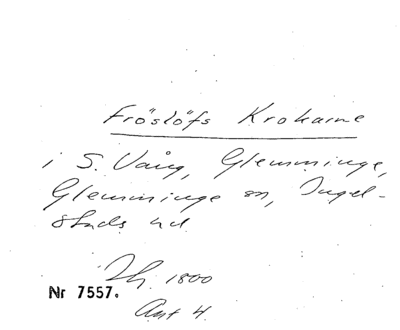 Fröslöfs Krokarne
i S. Vång, Glemminge,
Glemminge sn, Ingel-
stads hd.
Th. 1800
Nr 7557.
Ant 4.